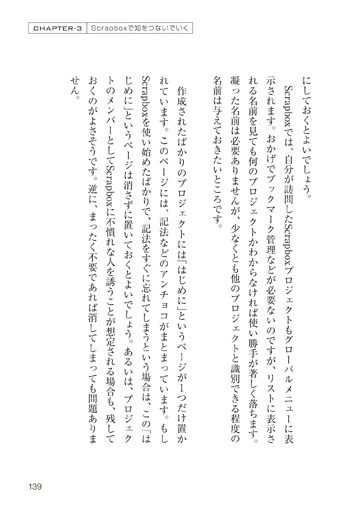 CHAPTER-3 Scrapboxで知をつないでいく
にしておくとよいでしょう。
Scrapboxでは、自分が訪問したScrapboxプロジェクトもグローバルメニューに表
示されます。おかげでブックマーク管理などが必要ないのですが、リストに表示さ
れる名前を見ても何のプロジェクトかわからなければ使い勝手が著しく落ちます。
凝った名前は必要ありませんが、少なくとも他のプロジェクトと識別できる程度の
名前は与えておきたいところです。
作成されたばかりのプロジェクトには「はじめに」というページが1つだけ置か
れています。このページには、記法などのアンチョコがまとまっています。もし
Scrapboxを使い始めたばかりで、記法をすぐに忘れてしまうという場合は、この「は
じめに」というページは消さずに置いておくとよいでしょう。あるいは、プロジェク
トのメンバーとしてScrapboxに不慣れな人を誘うことが想定される場合も、残して
おくのがよさそうです。逆に、まったく不要であれば消してしまっても問題ありま
せん。
139